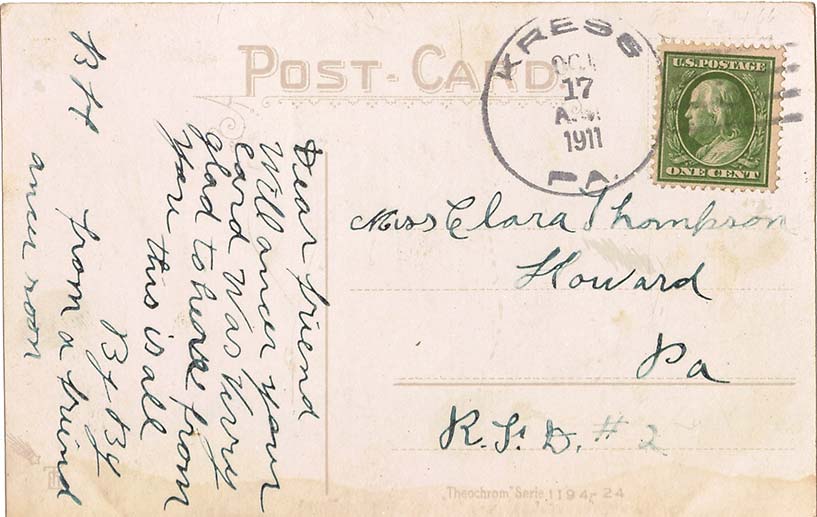 POST-CARD
KRESS
OCT
17
A.M.
1911
PA.
U.S. POSTAGE
ONE CENT
Dear friend
Will ancer your
card was very
glad to heare from
you this is all
By By
from a friend
ancer soon
Miss Clara Thompson
Howard
Pa
R.F.D. #2
"Theochrom" Serie 1194-24